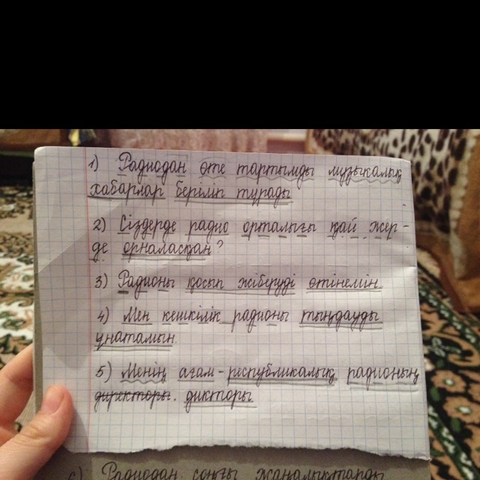 1) Радиодан өте тартымды музыкалық
хабарлар беріліп тұрады
2) Сіздерде радио орталығы қай жер-
де орналасқан?
3) Радионы қосып жіберуді өтінемін.
4) Мен кешкілік радионы тыңдауды
ұнатамын
5) Менің ағам-республикалық радионың
директоры. дикторы
6) Радиодан соңғы жаңалықтарды